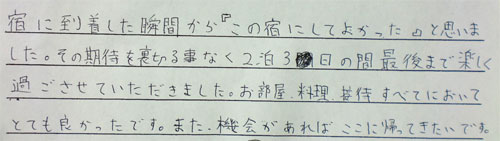 宿に到着した瞬間から『この宿にしてよかった』と思いま
した。その期待を裏切る事なく2泊3日の間最後まで楽しく
過ごさせていただきました。お部屋、料理、接待すべてにおいて
とても良かったです。また、機会があればここに帰ってきたいです。